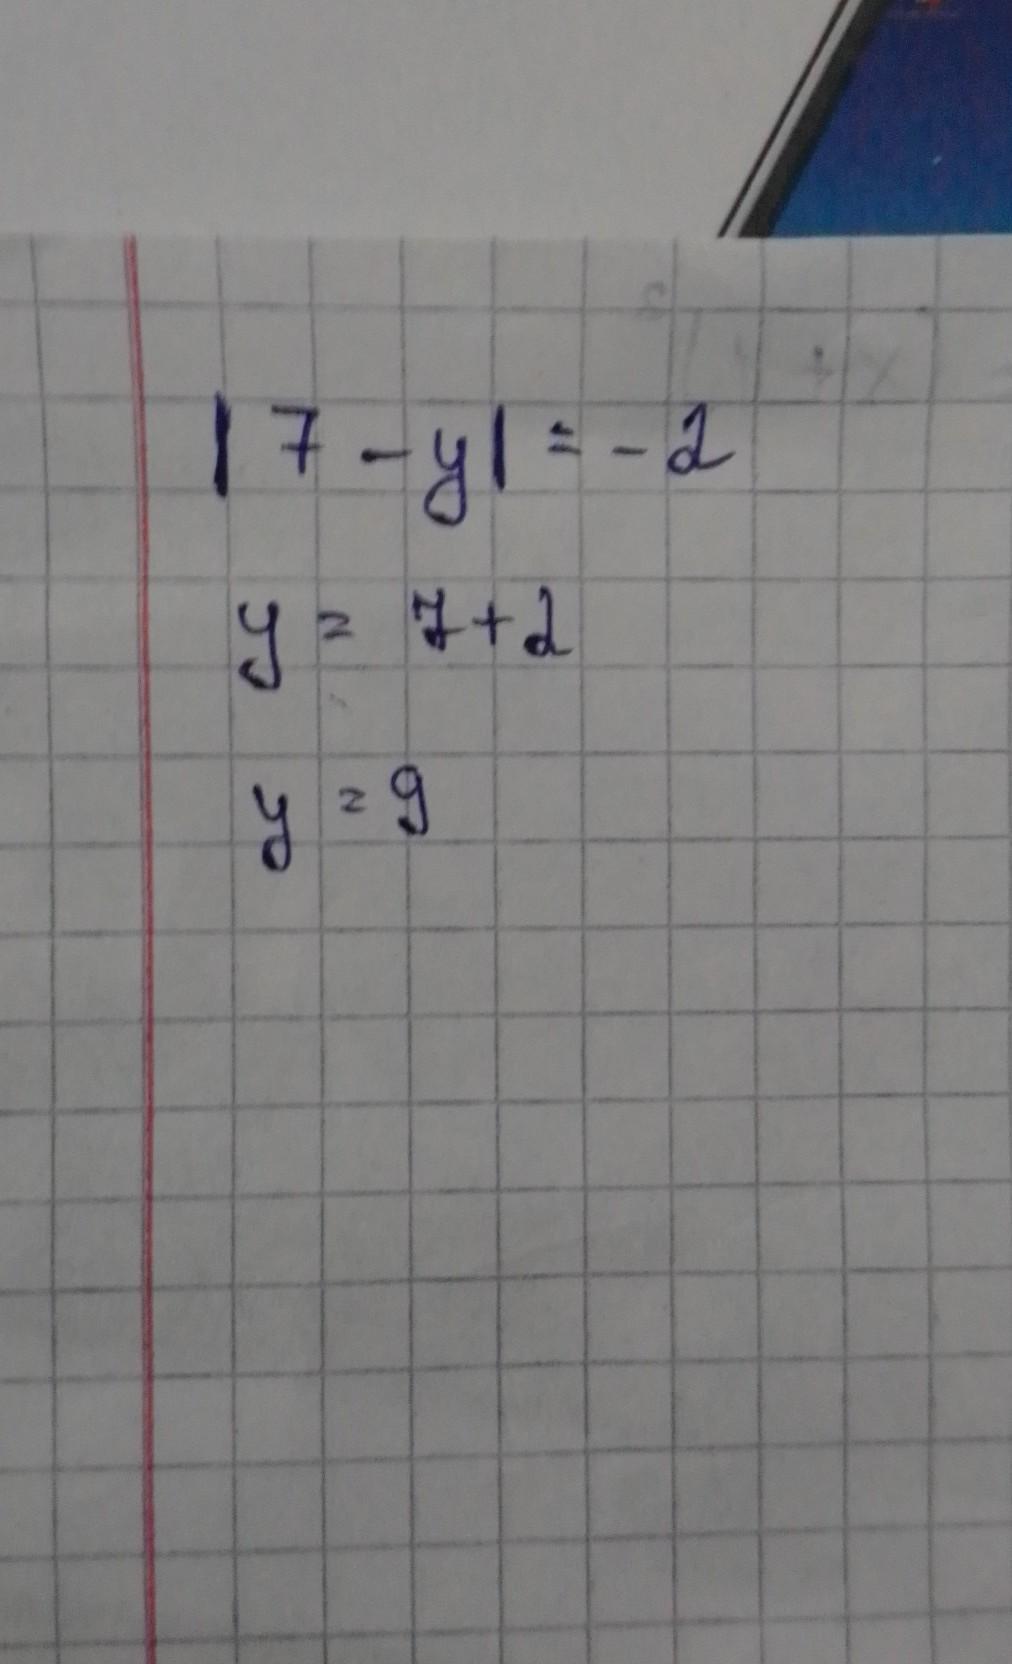 |7-y|=-2
y = 7+2
y = 9